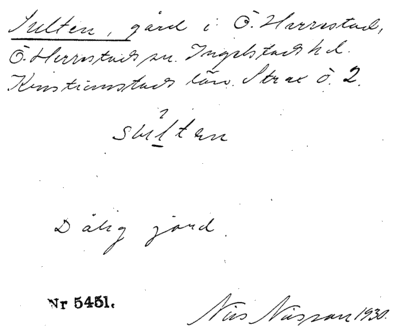 Sulten, gård i Ö. Herrestad,
Ö. Herrestads sn. Ingelstads hd.
Kristianstads län. Strax Ö. 2.
sulten
Dålig jord.
Nr 5451.
Nils Nilsson 1930.